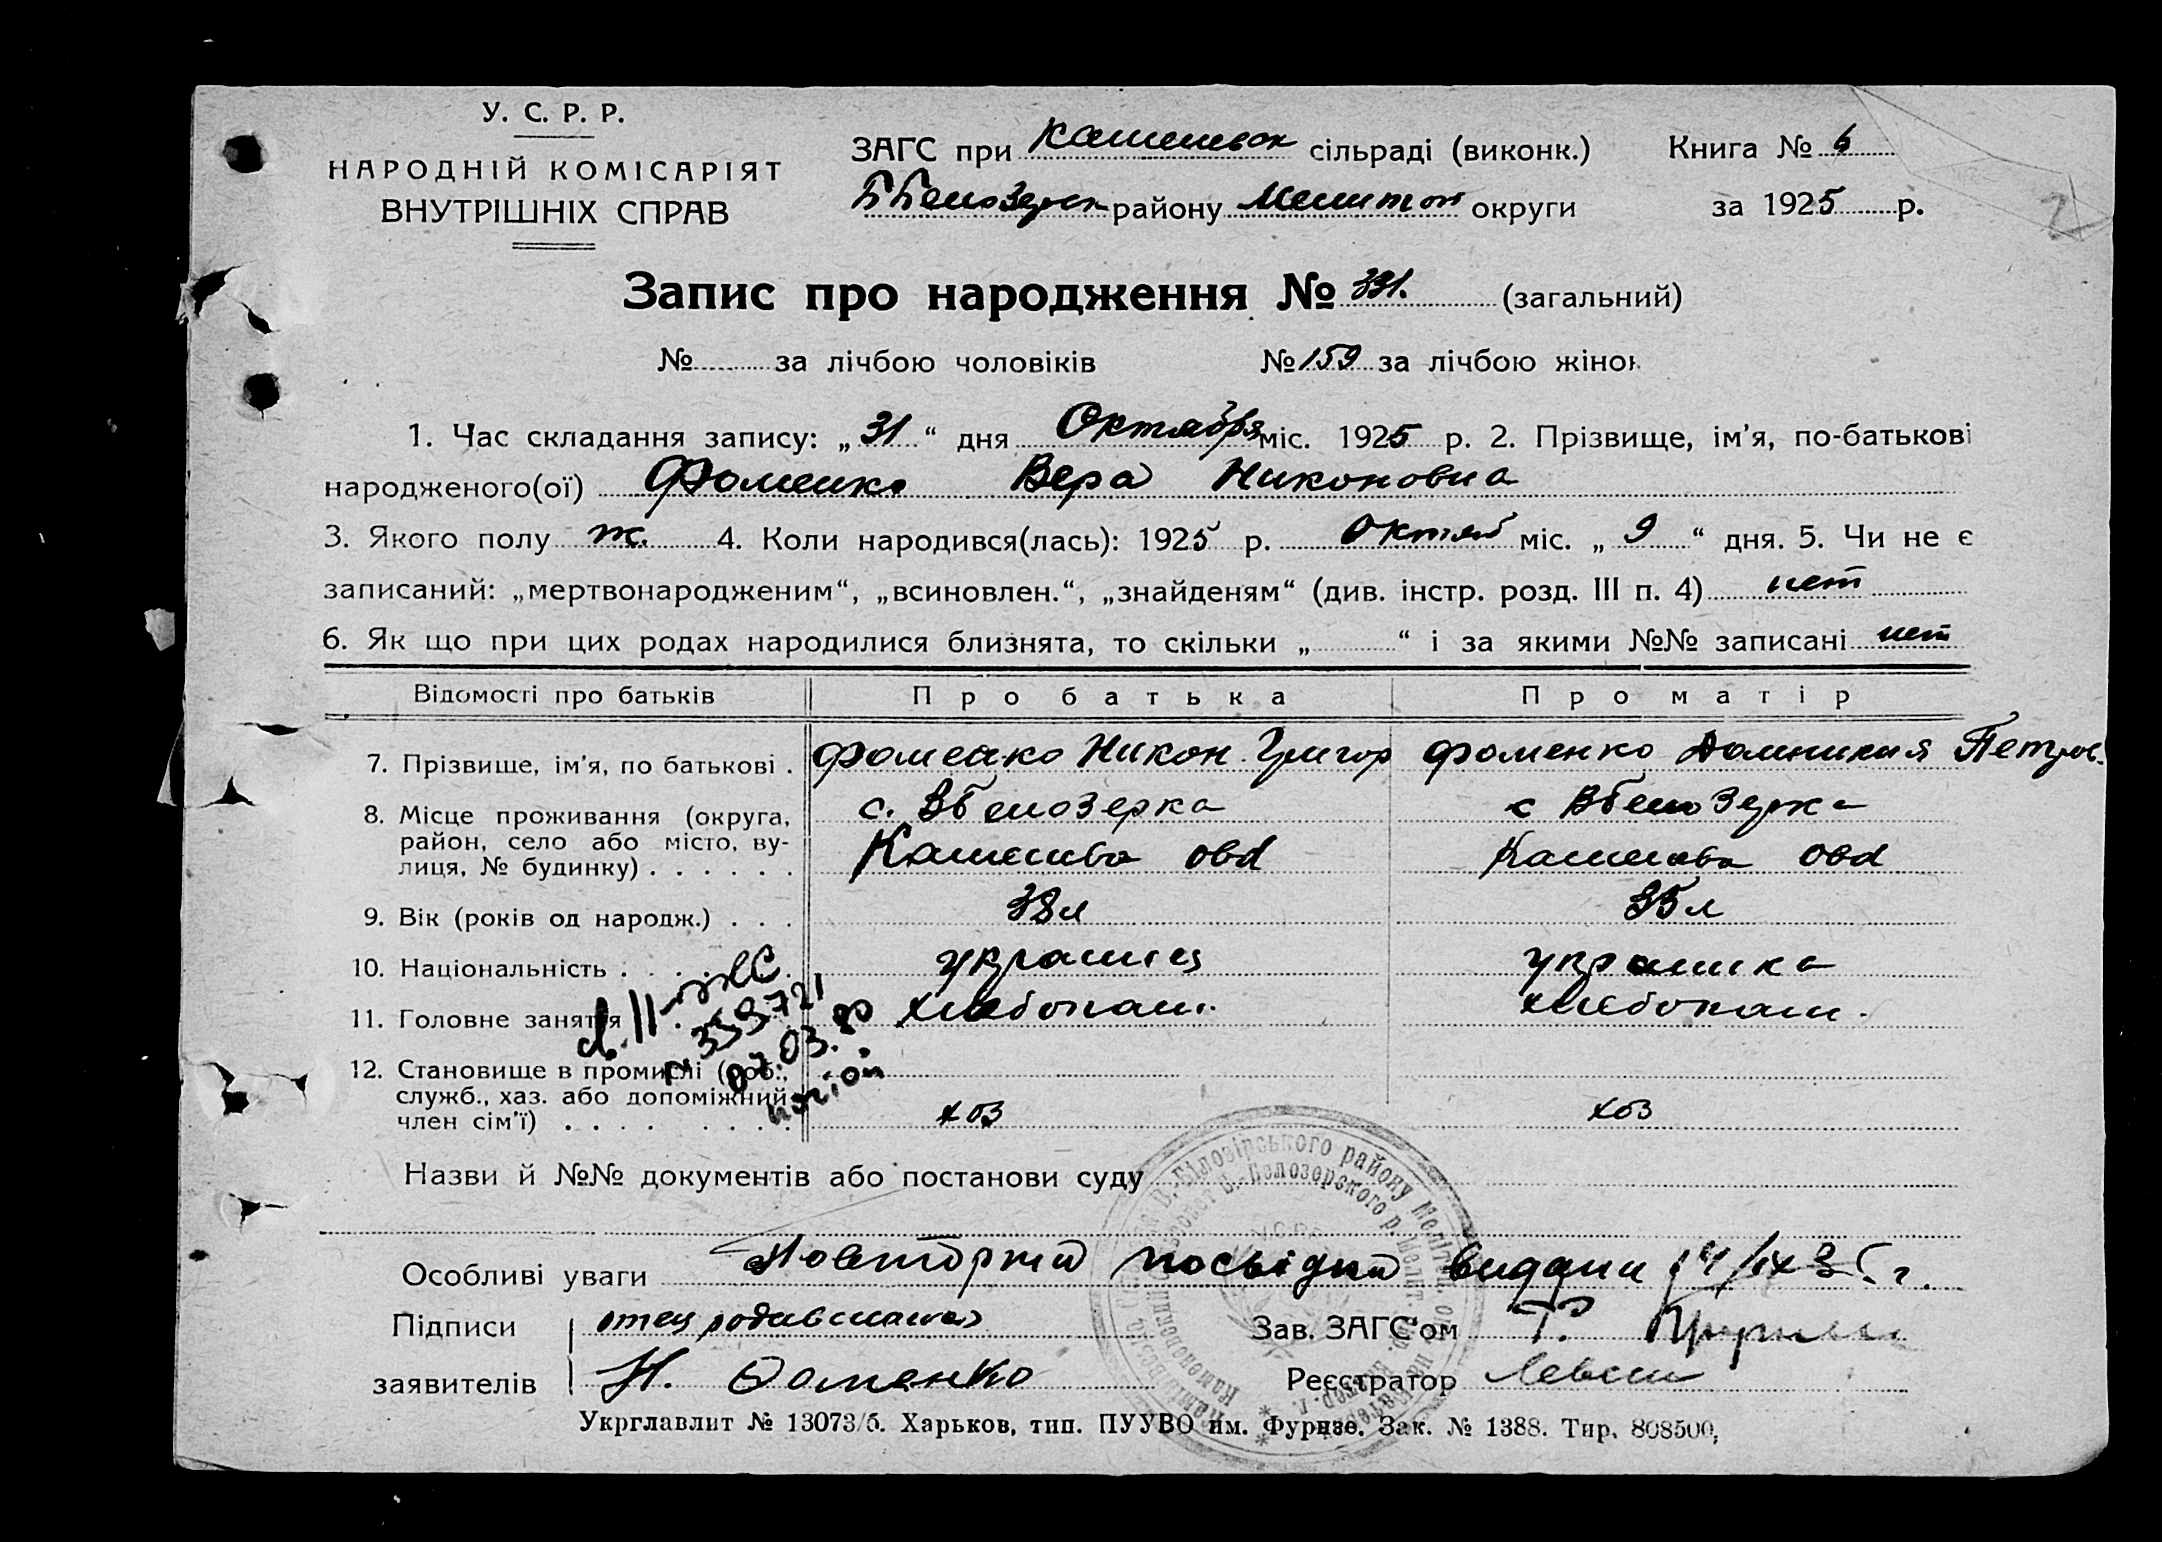 У. С. Р. Р.
НАРОДНІЙ КОМІСАРІЯТ
ВНУТРІШНІХ СПРАВ
ЗАГС при Каменевск сільраді (виконк.) Книга № 6
ББелозерск району Мелитоп округи за 1925 р.
Запис про народження № 331. (загальний)
№ за лічбою чоловіків № 159 за лічбою жінок
1. Час складання запису: „31“ дня Октября міс. 1925 р. 2. Прізвище, ім'я, по-батькові
народженого(ої) Фоменко Вера Никоновна
3. Якого полу ж. 4. Коли народився(лась): 1925 р. Октяб міс. „9“ дня. 5. Чи не є
записаний: „мертвонародженим“, „всиновлен.“, „знайденям“ (див. інстр. розд. III п. 4) нет
6. Як що при цих родах народилися близнята, то скільки „ “ і за якими №№ записані нет
Відомості про батьків Про батька Про матір
7. Прізвище, ім'я, по батькові . Фоменко Никон Григор Фоменко Домникия Петров.
8. Місце проживання (округа, с. ВБелозерка с ВБелозерка
район, село або місто, ву-
лиця, № будинку) . . . . . .
9. Вік (років од народж.) . . . 38л 35л
10. Національність . . . . украинец украинка
11. Головне заняття хлебопаш. хлебопаш.
12. Становище в промислі (роб.,
служб., хаз. або допоміжний
член сім'ї) . . . . . . . . хоз хоз
№ 339721
07.03.80
Назви й №№ документів або постанови суду
Особливі уваги Повторна посвідка видана 14/IX 35 г.
Підписи отец родившейся Зав. ЗАГС'ом Т.
заявителів Н. Фоменко Реєстратор
Укрглавлит № 13073/б. Харьков, тип. ПУУВО им. Фрунзе. Зак. № 1388. Тир. 808500,